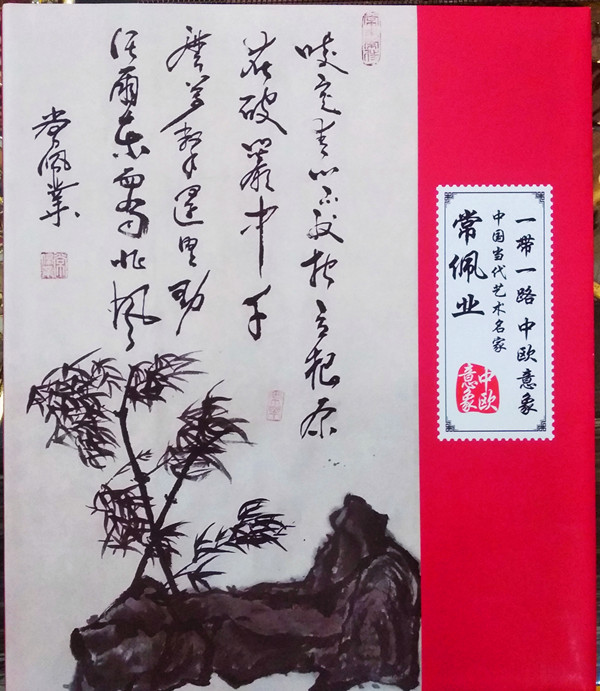 咬定青山不放松立根原
在破巖中千
磨萬擊還堅勁
任爾東西南北風
常佩業
一带一路 中欧意象
中国当代艺术名家
常佩业
中欧
意象